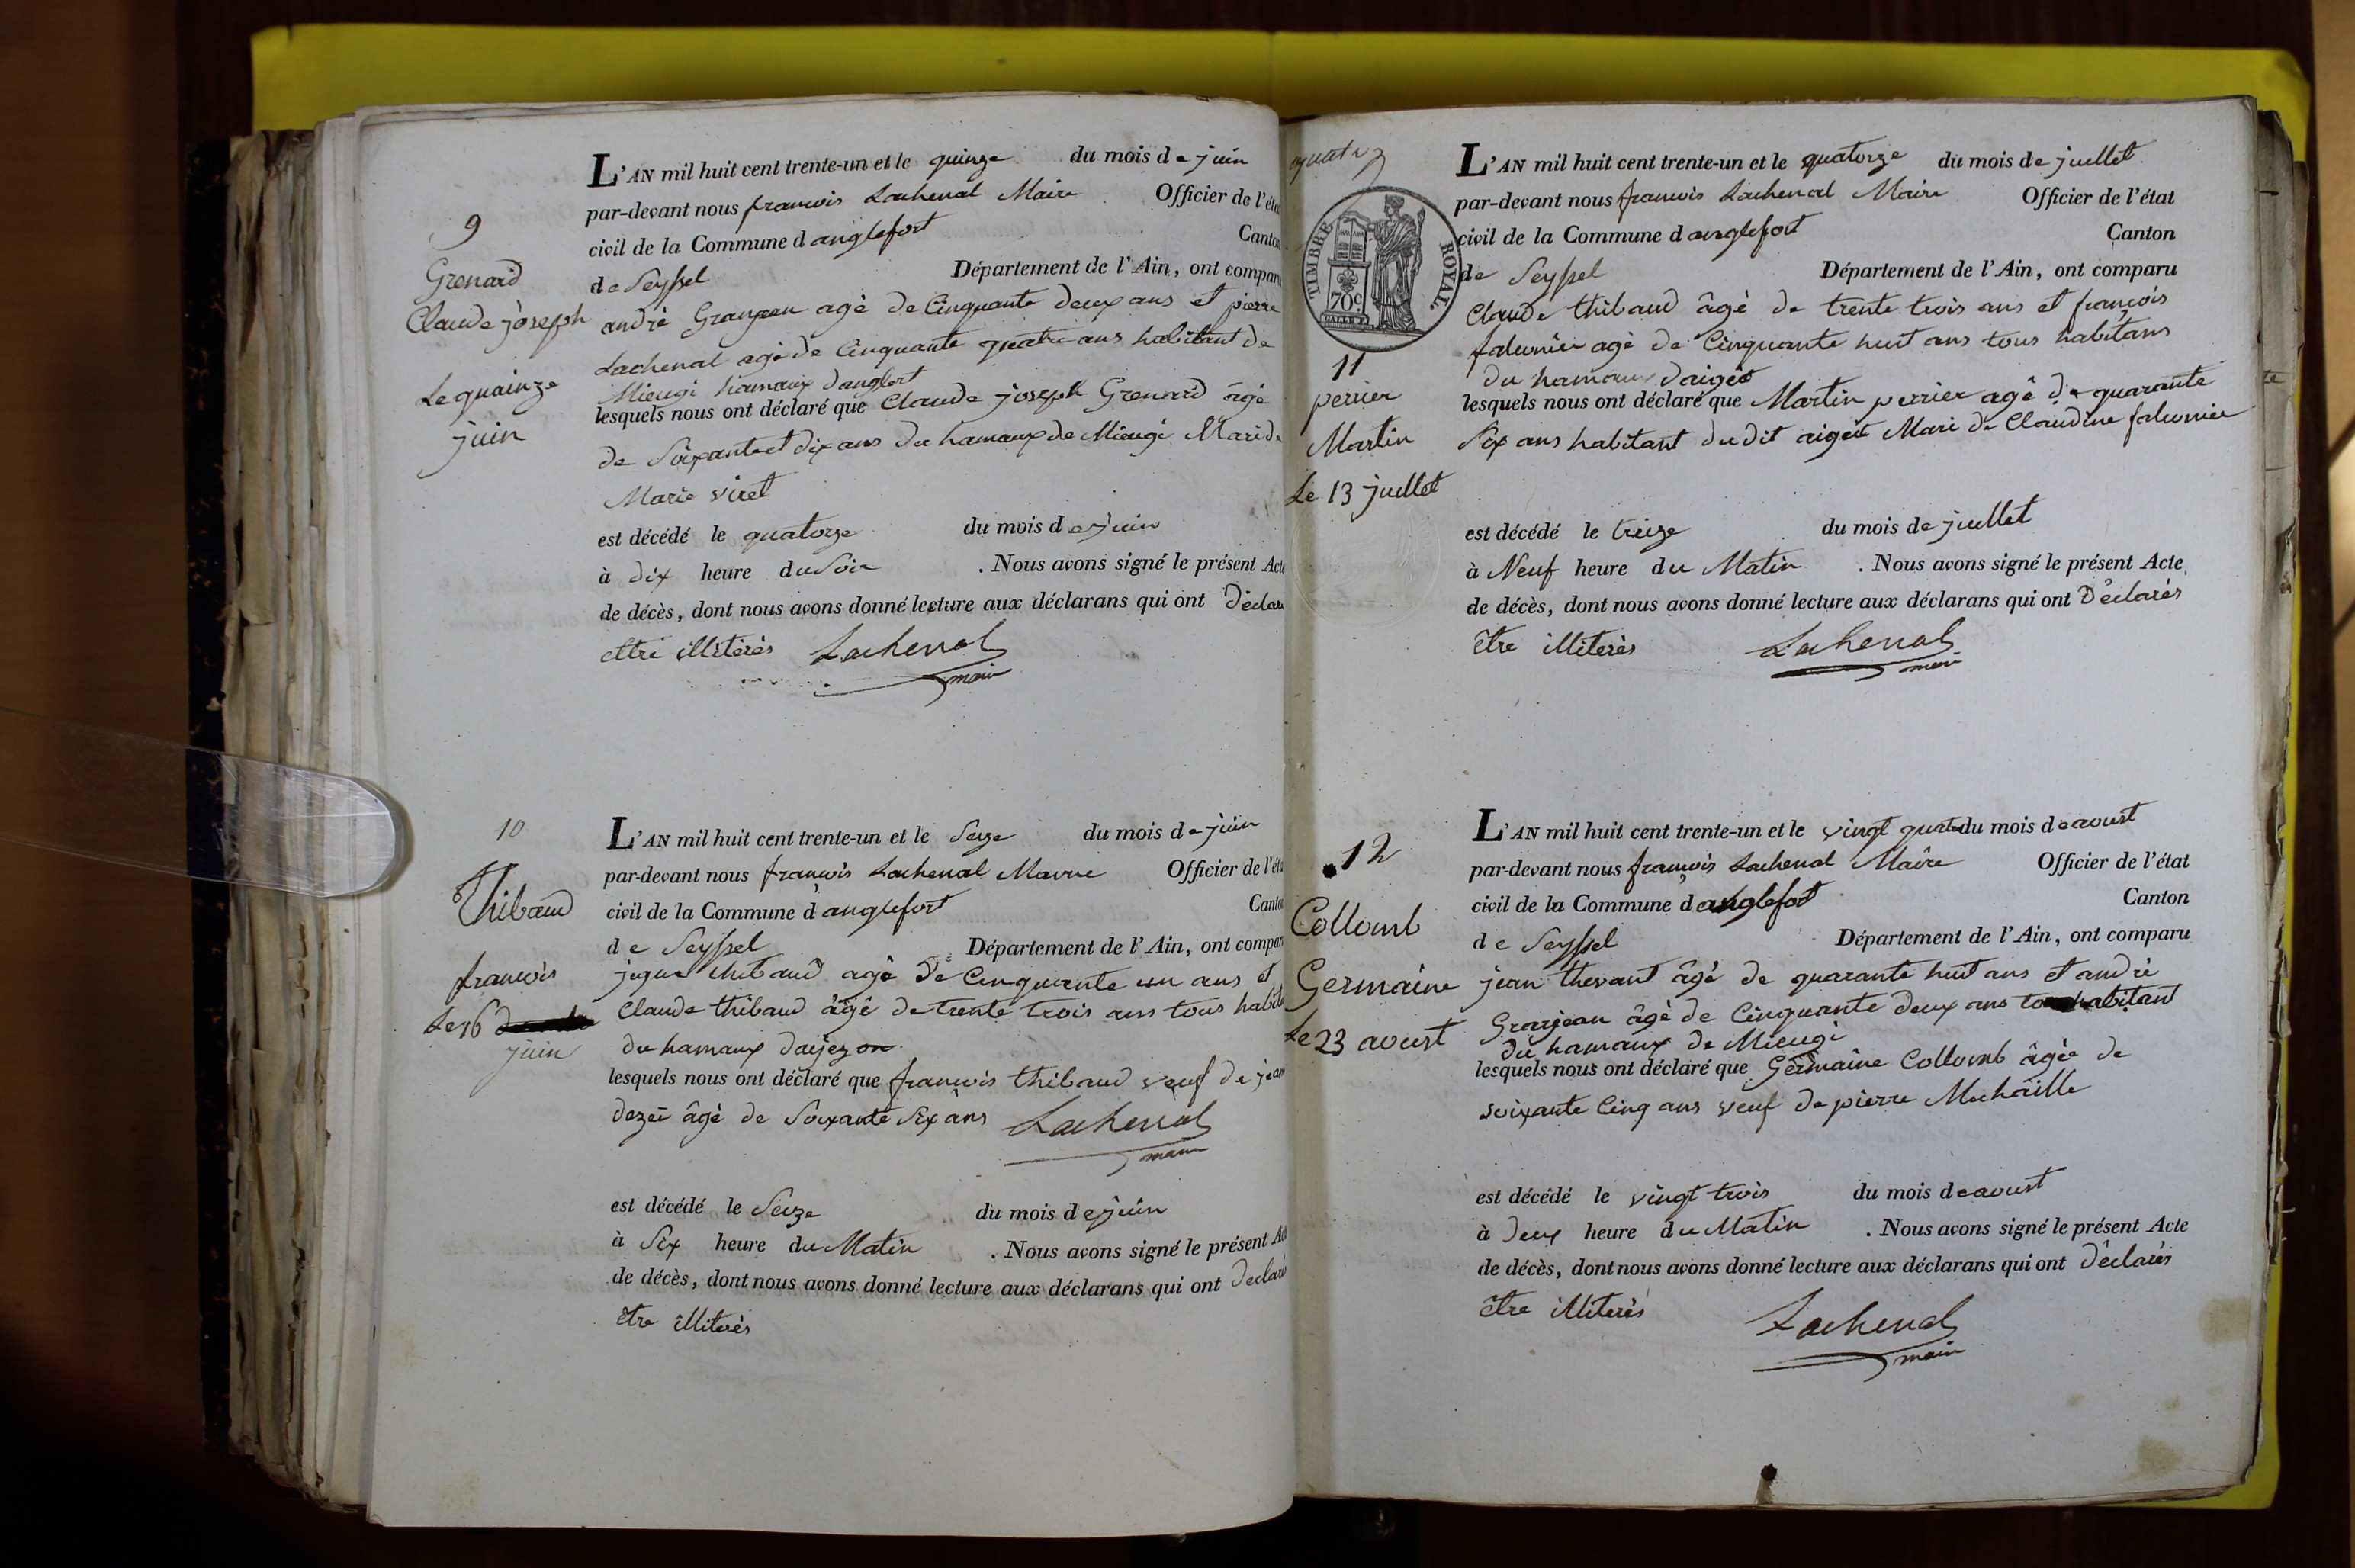 9
Grenard
Claude joseph
Le quainze
juin
L'AN mil huit cent trente-un et le quinze du mois de juin
par-devant nous francois Lachenal Maire Officier de l'éta
civil de la Commune d anglefort Canton
de Seyssel Département de l'Ain, ont comparu
andrè Granjean agè de Cinquante deux ans et pierre
Lachenal agè de Cinquante quatre ans habitant de
Mieugi hamaux danglert
lesquels nous ont déclaré que Claude joseph Grenard âgè
de Soixante et dix ans du hamaux de Mieugi Mari de
Marie viret
est décédé le quatorze du mois de juin
à dix heure du Soir . Nous avons signé le présent Acte
de décès, dont nous avons donné lecture aux déclarans qui ont Déclar
ettre illiterès Lachenal
maire
10
Thibaud
francois
Le 16
juin
L'AN mil huit cent trente-un et le Seize du mois de juin
par-devant nous francois Lachenal Officier de l'éta
civil de la Commune d anglefort Canto
de Seyssel Département de l'Ain, ont compar
thibaud agè de Cinquante un ans et
Claude thibaud âgê de trente trois ans tous habit
du hamaux
lesquels nous ont déclaré que francois thibaud veuf de jean
âgè de Soixante Six ans Lachenal
maire
est décédé le Seize du mois de juin
à Six heure du Matin . Nous avons signé le présent Act
de décès, dont nous avons donné lecture aux déclarans qui ont Declaré
être illiterès
TIMBRE ROYAL
70c
11
perrier
Martin
Le 13 juillet
L'AN mil huit cent trente-un et le quatorze du mois de juillet
par-devant nous francois Lachenal Maire Officier de l'état
civil de la Commune d anglefort Canton
de Seyssel Département de l'Ain, ont comparu
Claude thibaud âgè de trente trois ans et francois
falconier agè de Cinquante huit ans tous habitans
du hamaux
lesquels nous ont déclaré que Martin perrier agê de quarante
Six ans habitant du dit Mari de Claudine falconier
est décédé le treize du mois de juillet
à Neuf heure du Matin . Nous avons signé le présent Acte
de décès, dont nous avons donné lecture aux déclarans qui ont Déclarès
être illiterès Lachenal
maire
12
Collomb
Germaine
Le 23 avoust
L'AN mil huit cent trente-un et le vingt quatre du mois de avoust
par-devant nous francois Lachenal Maire Officier de l'état
civil de la Commune d anglefort Canton
de Seyssel Département de l'Ain, ont comparu
jean thevant âgè de quarante huit ans et andrè
Granjean âgè de Cinquante deux ans habitant
du hamaux de Mieugi
lesquels nous ont déclaré que Germaine Collomb âgèe de
soixante Cinq ans veuf de pierre Michaille
est décédé le vingt trois du mois de avoust
à Deux heure du Matin . Nous avons signé le présent Acte
de décès, dont nous avons donné lecture aux déclarans qui ont Déclarès
être illiterès
Lachenal
maire